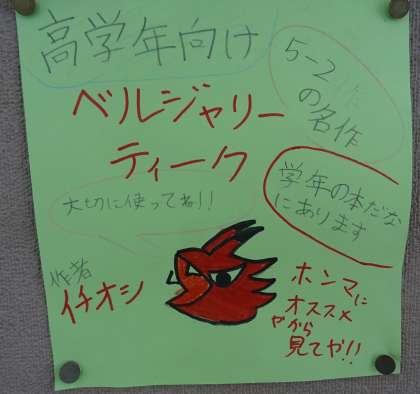 高学年向け
5-2
の名作
ベルジャリー
ティーク
学年の本だな
にあります
大切に使ってね!!
作者
イチオシ
ホンマに
オススメ
やから
見てや!!